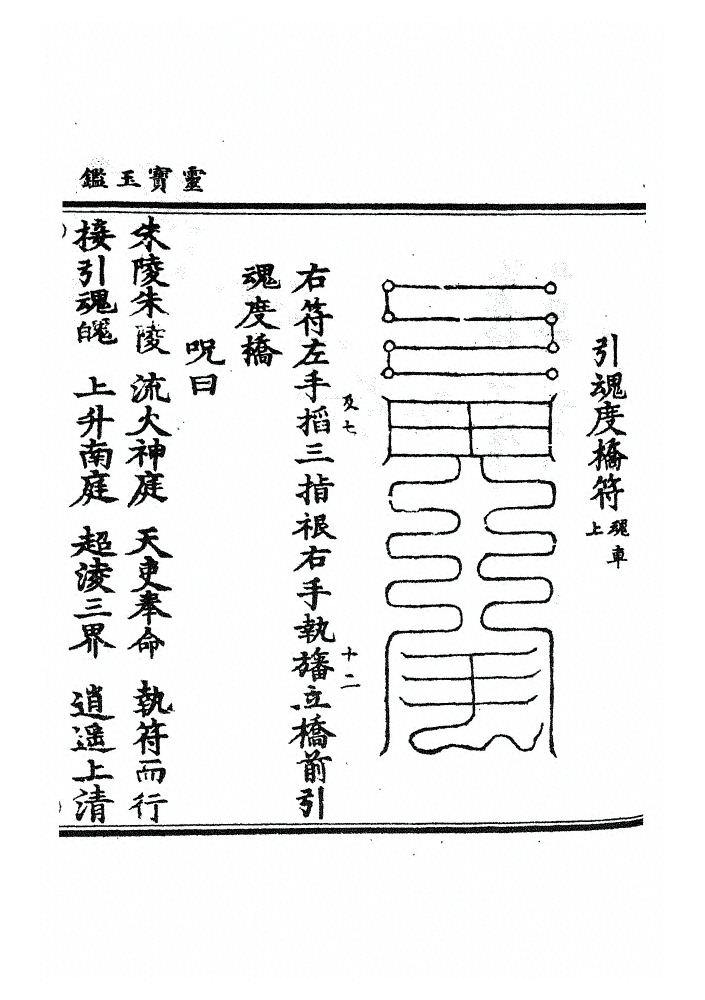 靈寶玉鑑
引魂度橋符 魂車上
及七 十二
右符左手搯三指根右手執旛立橋前引
魂度橋
呪曰
朱陵朱陵 流火神庭 天吏奉命 執符而行
接引魂魄 上升南庭 超淩三界 逍遥上清